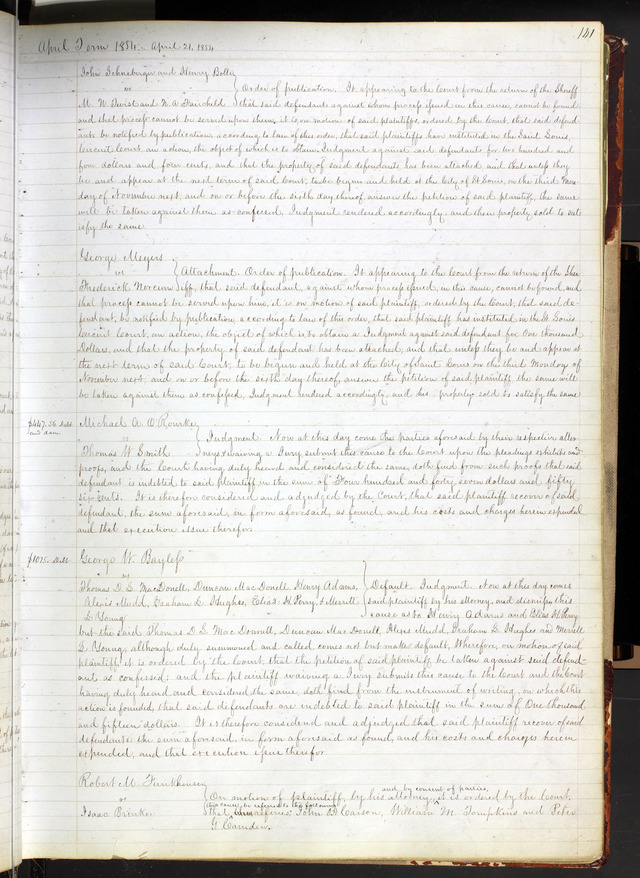 141
April Term 1854 - April 21, 1854
John Schneberger and Henry Bolte
vs Order of publication. It appearing to the Court from the return of the Sheriff
M. W. and N. A. Fairchild that said defendants against whom process issued in this cause, cannot be found
and that process cannot be served upon them, it is on motion of said plaintiffs, ordered by the Court that said defend-
ants be notified by publication according to law of this order, that said plaintiffs have instituted in the Saint Louis,
Circuit Court an action, the object of which is to obtain Judgment against said defendants for two hundred and
four dollars and four cents, and that the property of said defendants has been attached and that unless they
be and appear at the next term of said Court, to be begun and held at the City of St Louis, on the third Mon-
day of November next, and on or before the sixth day thereof answer the petition of said plaintiffs, the same
will be taken against them as confessed, Judgment rendered accordingly and their property sold to sat-
isfy the same
George Meyers
vs Attachment. Order of publication. It appearing to the Court from the return of the Sher
Frederick iff, that said defendant, against whom process issued, in this cause, cannot be found, and
that process cannot be served upon him, it is on motion of said plaintiff, ordered by the Court, that said de-
fendant, be notified by publication according to law of this order, that said plaintiff has instituted in the St Louis
Circuit Court, an action, the object of which is to obtain a Judgment against said defendant for One thousand
Dollars, and that the property of said defendant has been attached, and that unless they be and appear at
the next term of said Court, to be begun and held at the City of Saint Louis on the third Monday of
November next, and on or before the sixth day thereof, answer the petition of said plaintiff, the same will
be taken against them as confessed, Judgment rendered accordingly and his property sold to satisfy the same
$447.56 Debt Michael A. O'Rourke
and dam. vs Judgment Now at this day come the parties aforesaid by their respective attor-
Thomas W Smith neys waiving a Jury submit this cause to the Court upon the pleadings exhibits and
proofs, and the Court having duly heard and considered the same, doth find from such proofs that said
defendant is indebted to said plaintiff in the sum of Four hundred and forty seven dollars and fifty
six cents. It is therefore considered and adjudged by the Court, that said plaintiff recover of said
defendant, the sum aforesaid, in form aforesaid, as found, and his costs and charges herein expended
and that execution issue therefor.
$1015. Debt George W. Bayless
vs
Thomas D. S. MacDonell, Duncan MacDonell Henry Adams, Default Judgment. Now at this day comes
Alexis Mudd, Graham L. Hughes, Elias H Perry, & Merritt said plaintiff by his attorney, and dismisses this
L Young cause as to Henry Adams and Elias H. Perry
but the said Thomas D. S. Mac Donnell, Duncan Mac Donell, Alexis Mudd, Graham L Hughes and Merritt
L. Young, although duly summoned and called, comes not but makes default, Wherefore, on motion of said
plaintiff, it is ordered by the Court, that the petition of said plaintiff, be taken against said defend-
ants as confessed; and the plaintiff waiving a Jury submits this cause to the Court and the Court
having duly heard and considered the same, doth find from the instrument of writing, on which this
action is founded, that said defendants are indebted to said plaintiff in the sum of One thousand
and fifteen dollars. It is therefore considered and adjudged that said plaintiff recover of said
defendants the sum aforesaid, in form aforesaid as found, and his costs and charges herein
expended, and that execution issue therefor
Robert M. Funkhouser
and by consent of parties,
vs On motion of plaintiff, by his attorney, it is ordered by the Court,
this cause be referred to the following
Isaac Brinker that referees: John B. Carson, William M. Tompkins and Peter
G. Camden.